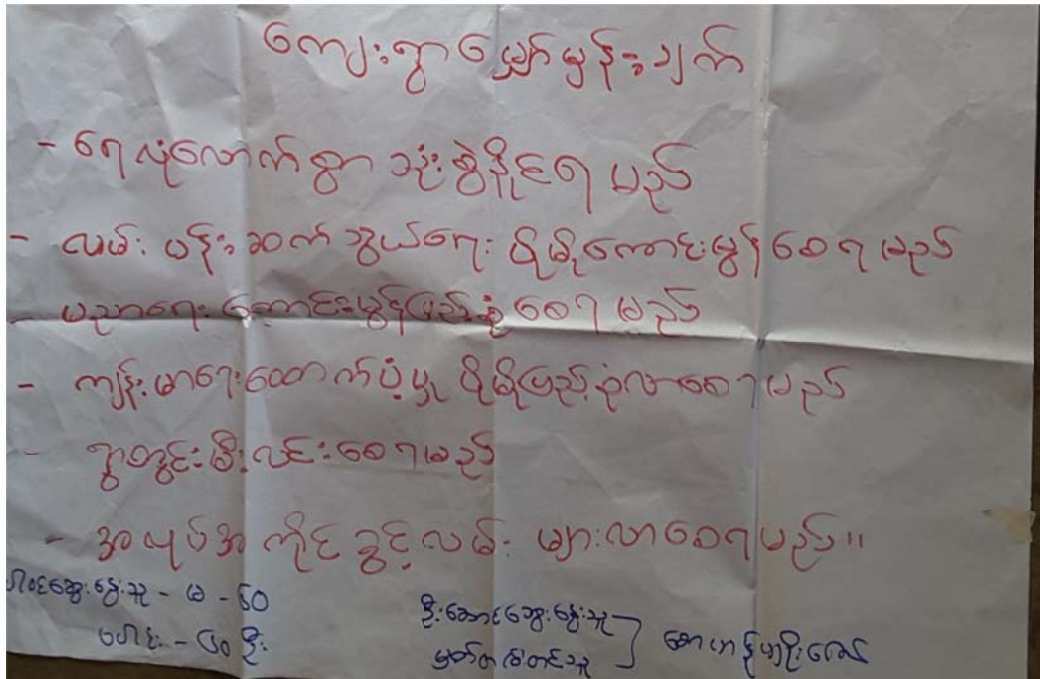 ကျေးရွာမျှော်မှန်းချက်
- ရေလုံလောက်စွာ သုံးစွဲနိုင်ရမည်
- လမ်းပန်းဆက်သွယ်ရေး ပိုမိုကောင်းမွန်စေရမည်
- ပညာရေးကောင်းမွန်ပြည့်စုံစေရမည်
- ကျန်းမာရေးထောက်ပံ့မှု ပိုမိုပြည့်စုံလာစေရမည်
- ရွာတွင်းမီးလင်းစေရမည်
- အလုပ်အကိုင်ခွင့်လမ်းများလာစေရမည်။
ပါဝင်ဆွေးနွေးသူ - မ - ၆၀
ပေါင်း - ၉၀ ဦး
ဦးဆောင်ဆွေးနွေးသူ
မှတ်တမ်းတင်သူ